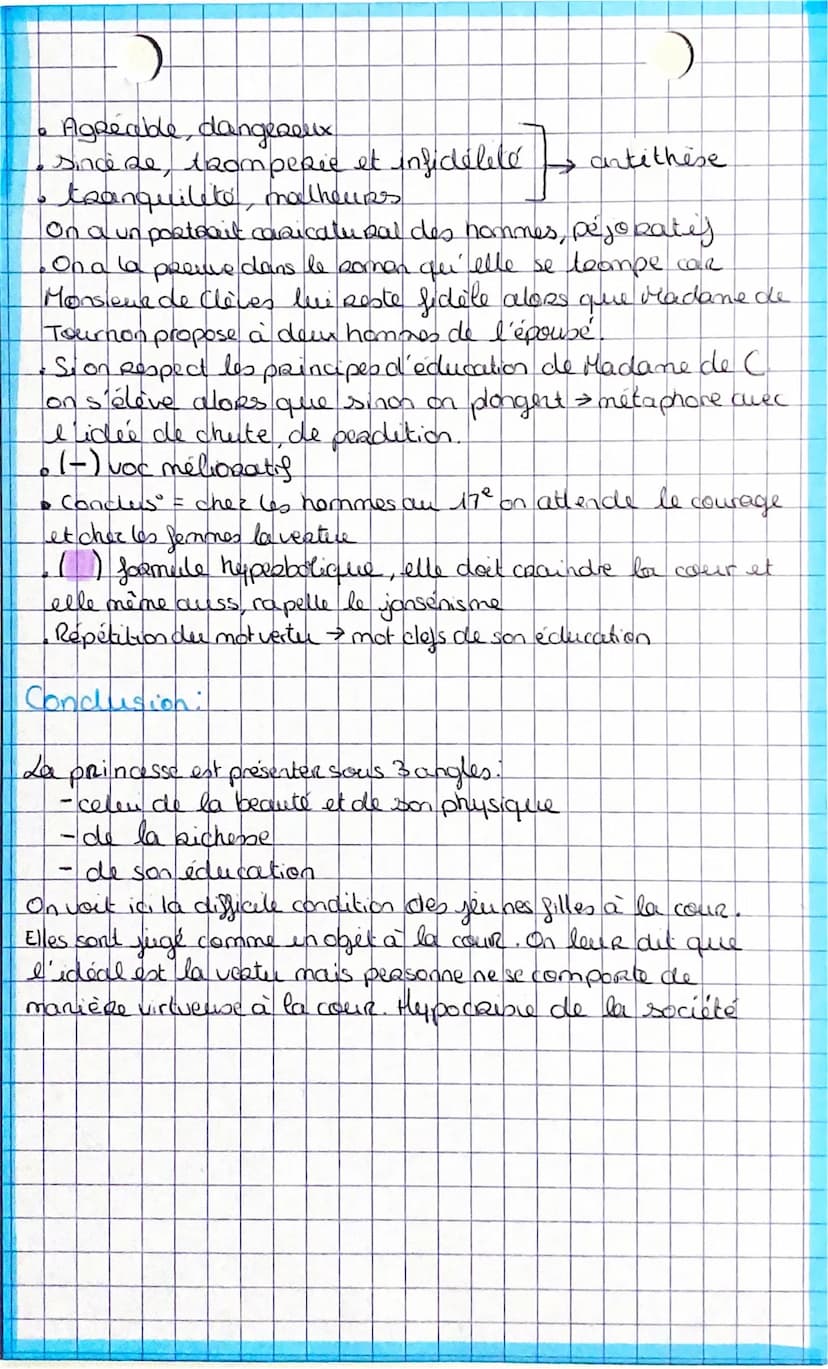 • Agréable, dangereux
• sincère, tromperie et infidélité → antithèse
• tranquilité, malheurs
On a un portrait caricatural des hommes, péjoratif
• On a la preuve dans le roman qu'elle se trompe car
Monsieur de Clèves lui reste fidèle alors que Madame de
Tournon propose à deux hommes de l'épousé.
• Si on respect les principes d'éducation de Madame de C
on s'élève alors que sinon on plongent → métaphore avec
l'idée de chute, de perdition.
• (-) voc mélioratif
• Conclus° = chez les hommes au 17e on attende le courage
et chez les femmes la vertue
• ( ) formule hyperbolique, elle doit craindre la cour et
elle même auss, rapelle le jansénisme
• Répétition du mot vertu → mot clefs de son éducation
Conclusion:
La princesse est présenter sous 3 angles:
- celui de la beauté et de son physique
- de la richesse
- de son éducation
On voit ici la difficile condition des jeunes filles à la cour.
Elles sont jugé comme un objet à la cour. On leur dit que
l'idéal est la vertu mais personne ne se comporte de
manière virtueuse à la cour. Hypocrisie de la société